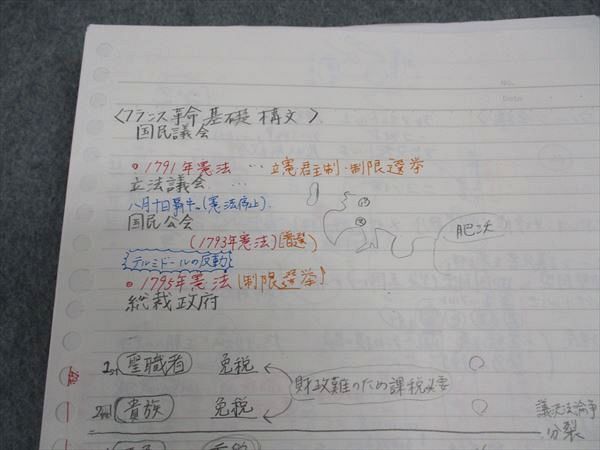 No.
Date
〈フランス革命 基礎 構文〉
国民議会
○1791年憲法 … 立憲君主制・制限選挙
立法議会 …
八月十日事件 (憲法停止).
国民公会
(1793年憲法) (普選)
肥沃
テルミドールの反動
○1795年憲法 (制限選挙)
総裁政府
1st 聖職者 免税
財政難のため課税必要
2nd 貴族 免税
議決法論争
分裂